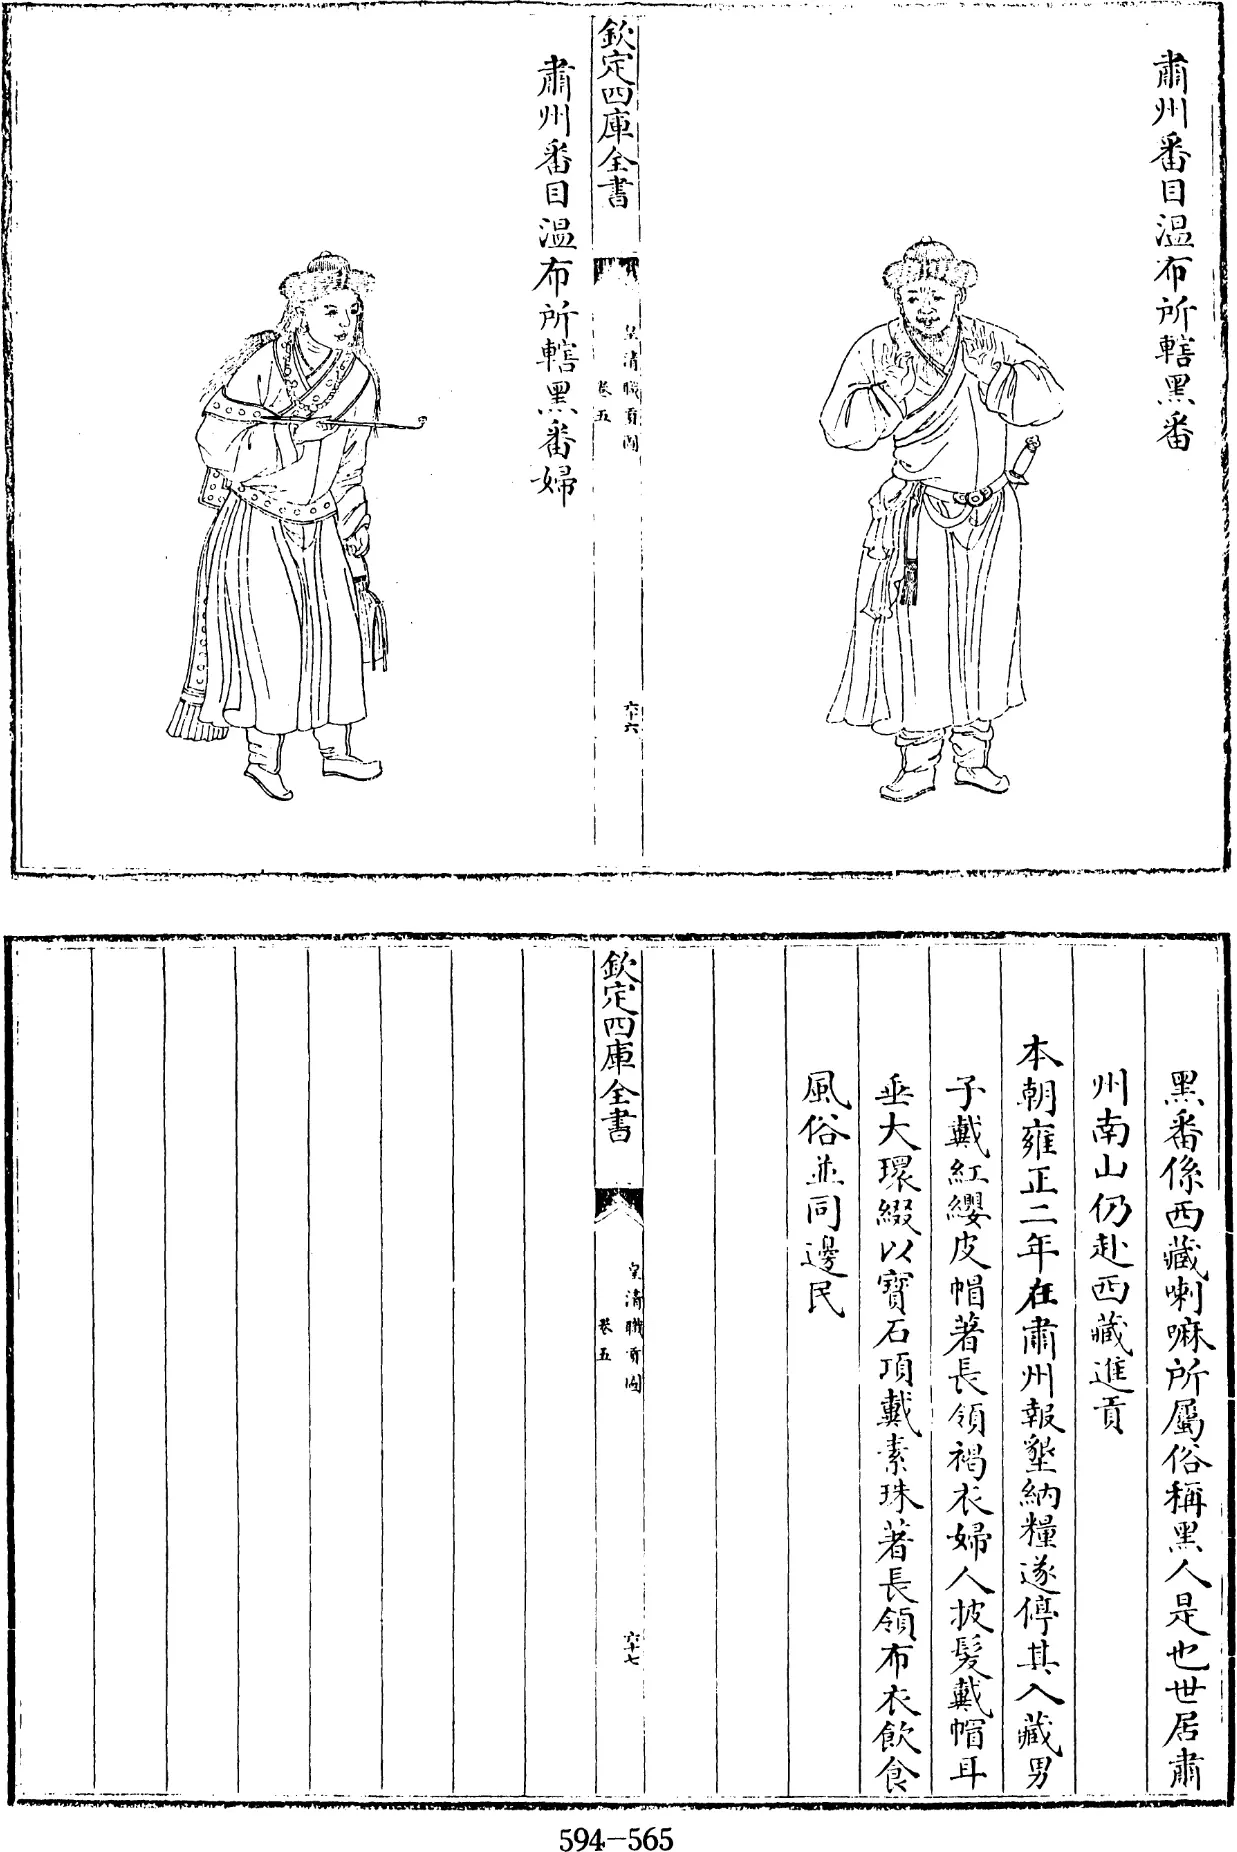 肅州番目温布所轄黑番
欽定四庫全書
皇清職貢圖
卷五
六十六
肅州番目温布所轄黑番婦
黑番係西藏喇嘛所屬俗稱黑人是也世居肅
州南山仍赴西藏進貢
本朝雍正二年在肅州報墾納糧遂停其入藏男
子戴紅纓皮帽著長領褐衣婦人披髮戴帽耳
垂大環綴以寶石項戴素珠著長領布衣飲食
風俗並同邊民
欽定四庫全書
皇清職貢圖
卷五
六十七
594-565